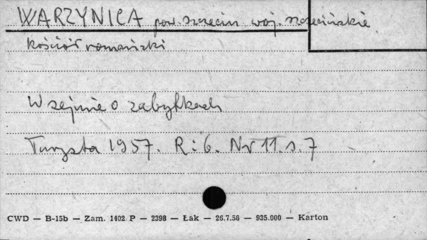 WARZYNICA pow. szczecin woj. szczecińskie
kościół romański
W sejmie o zabytkach
Turysta 1957. R: 6. Nr 11. s. 7
CWD — B-15b — Zam. 1402 P — 2398 — Łak — 26.7.58 — 935.000 — Karton